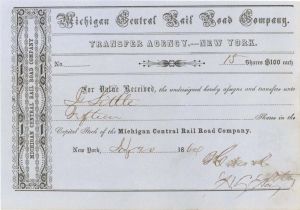 Michigan Central Rail Road Company.
TRANSFER AGENCY.—NEW YORK.
No. 15 Shares $100 each
For Value Received, the undersigned hereby assigns and transfers unto
Little
Fifteen Shares in the
Capital Stock of the Michigan Central Rail Road Company.
New York, 20 186
MICHIGAN CENTRAL RAIL ROAD COMPANY